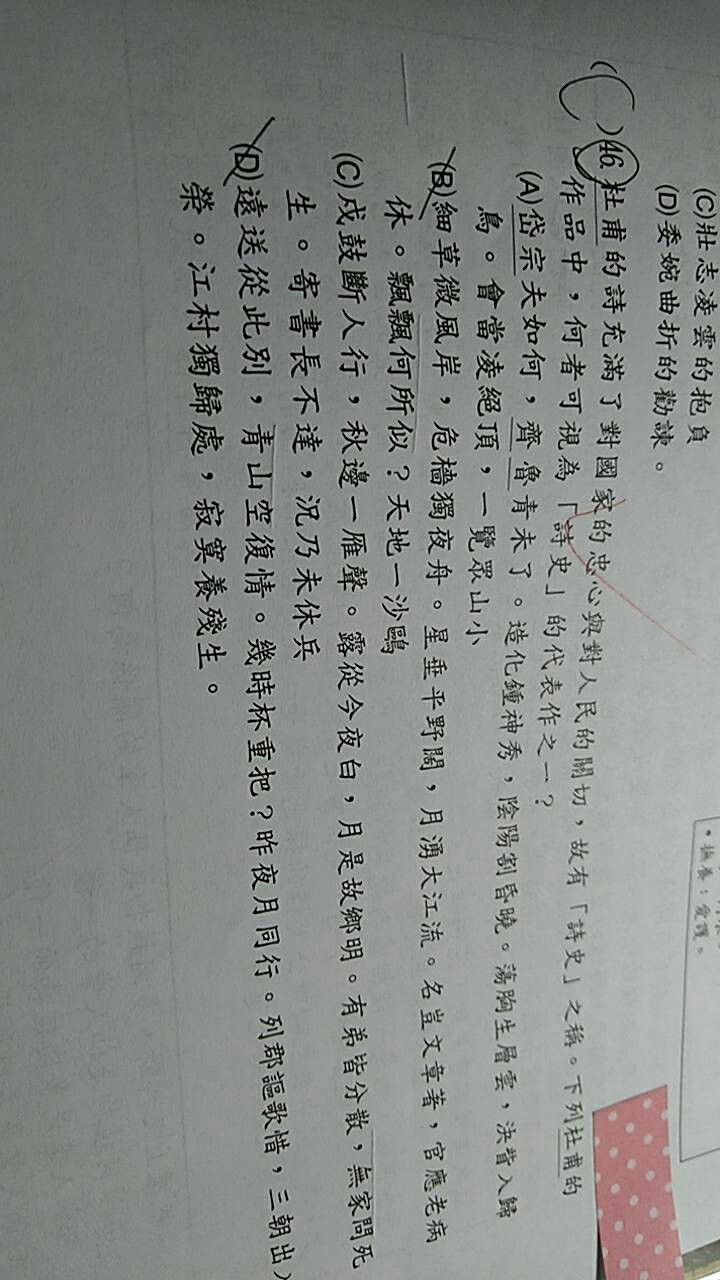 (C)壯志凌雲的抱負
(D)委婉曲折的勸諫。
( )46.杜甫的詩充滿了對國家的忠心與對人民的關切，故有「詩史」之稱。下列杜甫的
作品中，何者可視為「詩史」的代表作之一？
(A)岱宗夫如何，齊魯青未了。造化鍾神秀，陰陽割昏曉。蕩胸生層雲，決眥入歸
鳥。會當凌絕頂，一覽眾山小
(B)細草微風岸，危檣獨夜舟。星垂平野闊，月湧大江流。名豈文章著，官應老病
休。飄飄何所似？天地一沙鷗
(C)戍鼓斷人行，秋邊一雁聲。露從今夜白，月是故鄉明。有弟皆分散，無家問死
生。寄書長不達，況乃未休兵
(D)遠送從此別，青山空復情。幾時杯重把？昨夜月同行。列郡謳歌惜，三朝出
榮。江村獨歸處，寂寞養殘生。
•撫養：愛護。